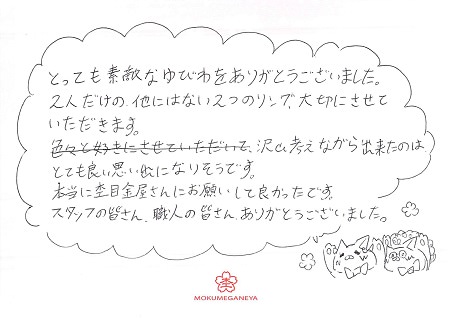 とっても素敵なゆびわをありがとうございました。
2人だけの、他にはない2つのリング、大切にさせて
いただきます。
色々と好きにさせていただいて、沢山考えながら出来たのは
とても良い思い出になりそうです。
本当に杢目金屋さんにお願いして良かったです。
スタッフの皆さん、職人の皆さん、ありがとうございました。
杢
MOKUMEGANEYA